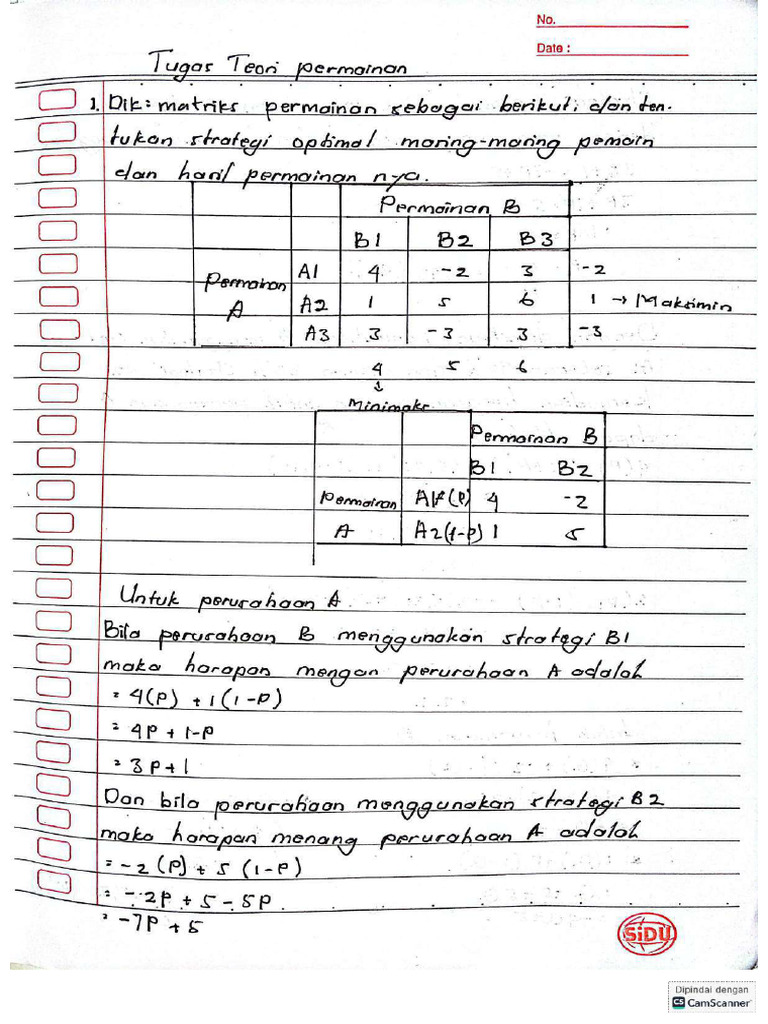 No.
Date :
Tugas Teori permainan
1. Dik: matriks permainan sebagai berikut; dan ten-
tukan strategi optimal maring-maring pemain
dan haril permainan nya.
Permainan B
B1 B2 B3
Permainan A1 4 -2 3 -2
A A2 1 5 6 1 → Maksimin
A3 3 -3 3 -3
4 5 6
↓
Minimaks
Permainan B
B1 B2
Permainan A1 (P) 4 -2
A A2(1-P) 1 5
Untuk perusahaan A
Bila perusahaan B menggunakan strategi B1
maka harapan mengan perusahaan A adalah
= 4(P) + 1(1-P)
= 4P + 1-P
= 3P+1
Dan bila perusahaan menggunakan strategi B2
maka harapan menang perusahaan A adalah
= -2 (P) + 5 (1-P)
= -2P + 5 - 5P
= -7P + 5
SiDU
Dipindai dengan
CS CamScanner